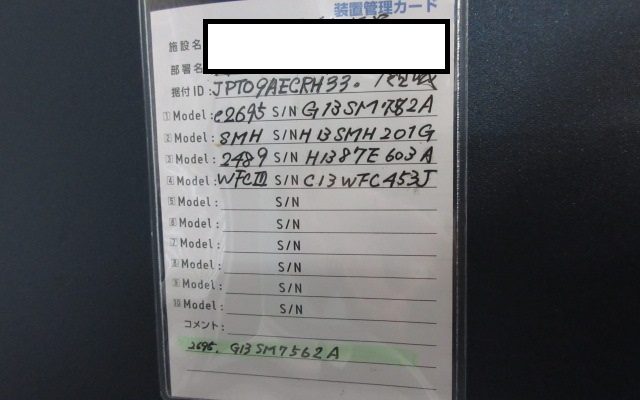 装置管理カード
施設名
部署名
据付ID: JPT09AECRH33.
1 Model: e2695 S/N G13SM7582A
2 Model: SMH S/N H13SMH201G
3 Model: 2489 S/N H1387E603A
4 Model: WFCIII S/N C13WFC453J
5 Model: S/N
6 Model: S/N
7 Model: S/N
8 Model: S/N
9 Model: S/N
10 Model: S/N
コメント:
2695. G13SM7562A